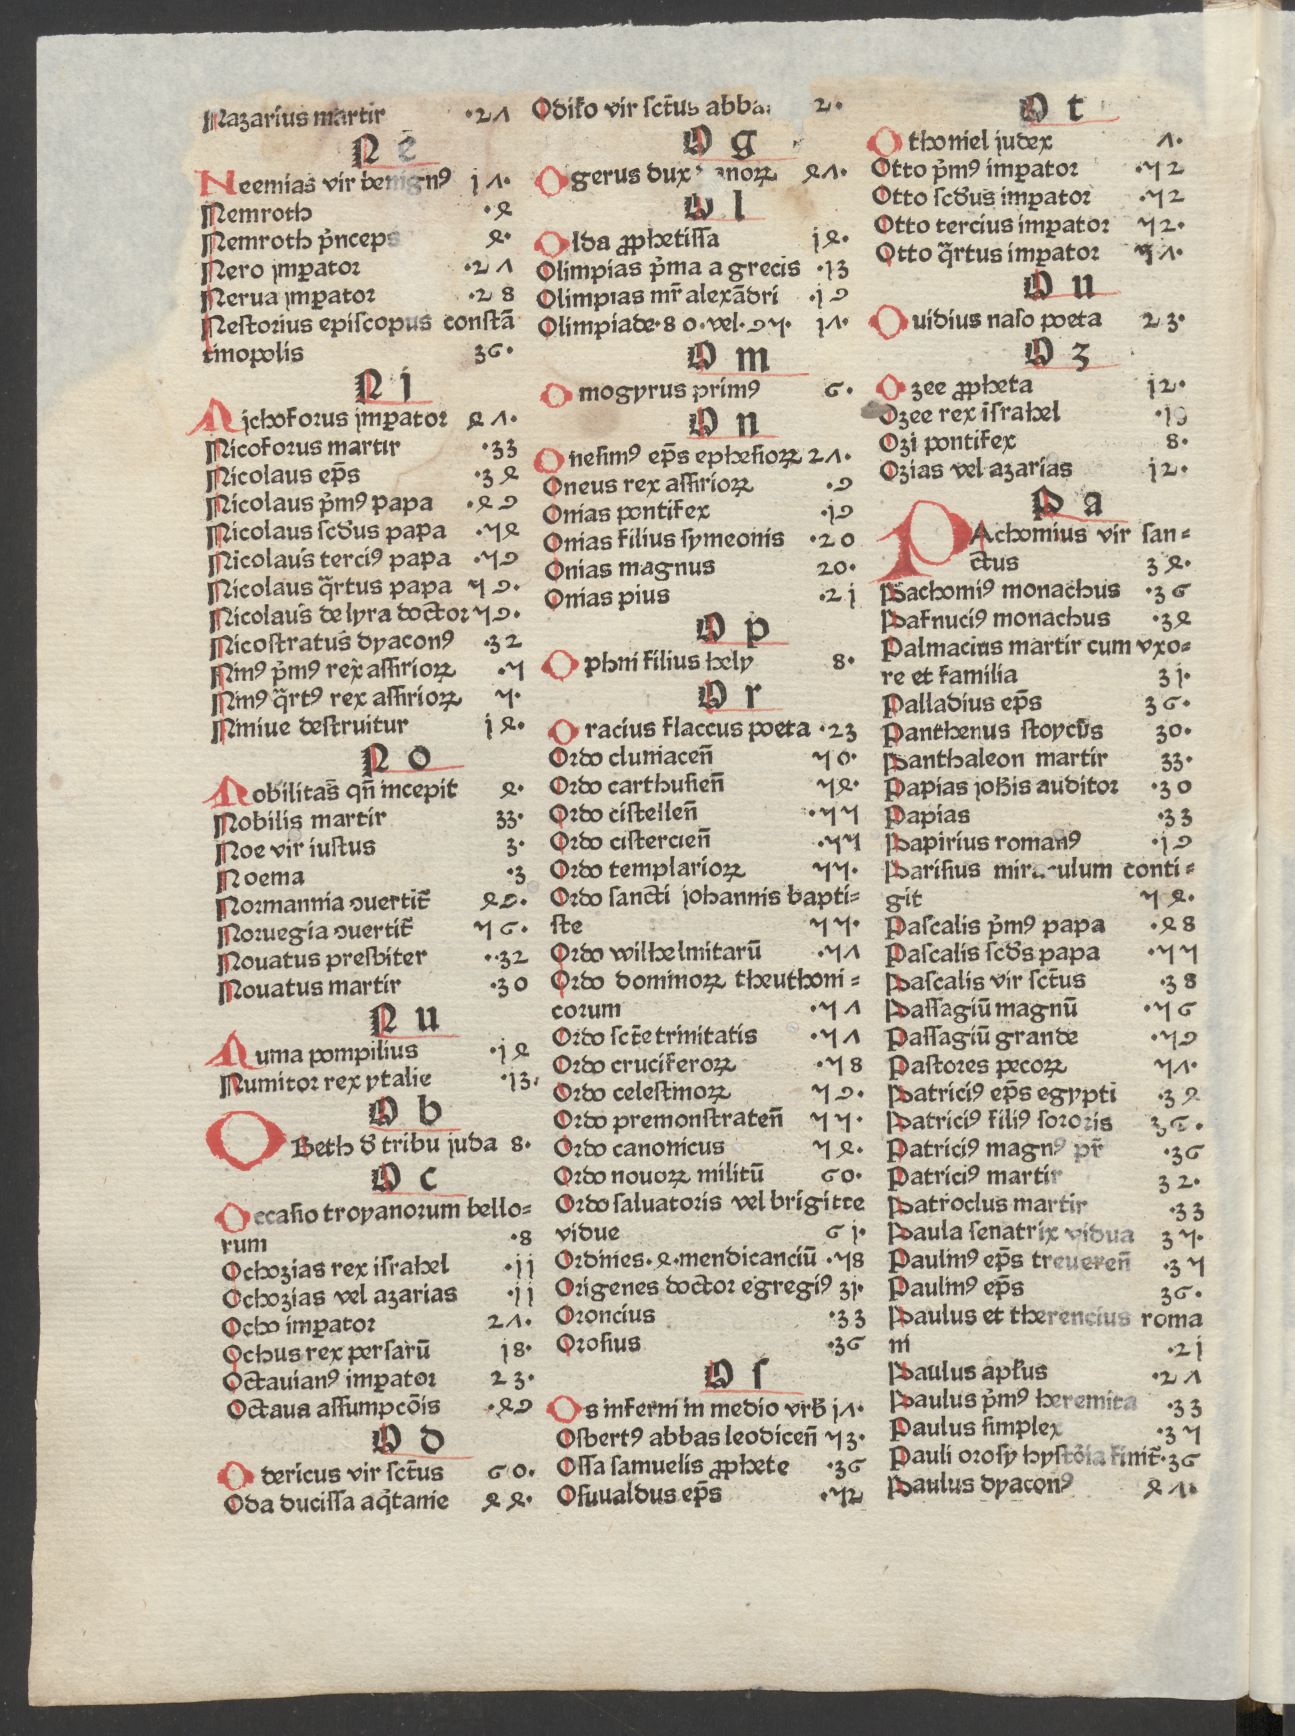 Nazarius martir ·27
Ne
Neemias vir benignꝰ 17·
Nemroth ·4
Nemroth p̃nceps 4·
Nero imꝑator ·27
Nerua imꝑator ·28
Nestorius episcopus constã
tinopolis 36·
Ni
Nichoforus imꝑator 47·
Nicoforus martir ·33
Nicolaus ep̃s ·34
Nicolaus p̃mꝰ papa ·49
Nicolaus scďus papa ·54
Nicolaus terciꝰ papa ·59
Nicolaus q̃rtus papa 59·
Nicolaus de lyra doctor 59·
Nicostratus dyaconꝰ ·32
Ninꝰ p̃mꝰ rex assirioꝝ ·5
Ninꝰ q̃rtꝰ rex assirioꝝ 5·
Niniue destruitur 14·
No
Nobilitas qñ incepit 4·
Nobilis martir 33·
Noe vir iustus 3·
Noema ·3
Normannia ꝯuertit̃ 49·
Noruegia ꝯuertit̃ 56·
Nouatus presbiter ·32
Nouatus martir ·30
Nu
Numa pompilius ·14
Numitor rex ytalie ·13·
Ob
OBeth ď tribu juda 8·
Oc
Occasio troyanorum bello=
rum ·8
Ochozias rex israhel ·11
Ochozias vel azarias ·11
Ocho imꝑator 27·
Ochus rex persarũ 18·
Octauianꝰ imꝑator 23·
Octaua assumpcõis ·49
Od
Odericus vir sct̃us 60·
Oda ducissa aq̃tanie 44·
Odilo vir sct̃us abba
Og
Ogerus dux 47·
Ol
Olda ꝓphetissa 14·
Olimpias p̃ma a grecis ·13
Olimpias mr̃ alexãdri ·19
Olimpiade·80·vel·95· 17·
Om
Omogyrus primꝰ 6·
On
Onesimꝰ ep̃s ephesioꝝ 27·
Oneus rex assirioꝝ ·9
Onias pontifex ·19
Onias filius symeonis ·20
Onias magnus 20·
Onias pius ·21
Op
Ophni filius hely 8·
Or
Oracius flaccus poeta ·23
Ordo cluniaceñ 50·
Ordo carthusieñ 54·
Ordo cistelleñ ·55
Ordo cistercieñ ·55
Ordo templarioꝝ 55·
Ordo sancti johannis bapti=
ste 55·
Ordo wilhelmitarũ ·57
Ordo dominoꝝ theuthoni=
corum ·57
Ordo sct̃e trinitatis ·57
Ordo cruciferoꝝ ·58
Ordo celestinoꝝ 59·
Ordo premonstrateñ 55·
Ordo canonicus 54·
Ordo nouoꝝ militũ 60·
Ordo saluatoris vel brigitte
vidue 61·
Ordines·4·mendicanciũ ·58
Origenes doctor egregiꝰ 31·
Oroncius ·33
Orosius ·36
Os
Os inferni in medio vrb̃ 17·
Osbertꝰ abbas leodiceñ 53·
Ossa samuelis ꝓphete ·36
Osuualdus ep̃s ·52
Ot
Othoniel judex 7·
Otto p̃mꝰ imꝑator ·52
Otto scďus imꝑator ·52
Otto tercius imꝑator 52·
Otto q̃rtus imꝑator 57·
Ou
Ouidius naso poeta 23·
Oz
Ozee ꝓpheta 12·
Ozee rex israhel ·19
Ozi pontifex 8·
Ozias vel azarias 12·
Pa
PAchomius vir san=
ctus 34·
Pachomiꝰ monachus ·36
Pafnuciꝰ monachus ·34
Palmacius martir cum vxo=
re et familia 31·
Palladius ep̃s 36·
Panthenus stoycũs 30·
Panthaleon martir 33·
Papias joh̃is auditor ·30
Papias ·33
Papirius romanꝰ ·19
Parisius miraculum conti=
git 54·
Pascalis p̃mꝰ papa ·48
Pascalis scďs papa ·55
Pascalis vir sct̃us ·38
Passagiũ magnũ ·56
Passagiũ grande ·59
Pastores pecoꝝ 57·
Patriciꝰ ep̃s egypti ·34
Patriciꝰ filiꝰ sororis 36·
Patriciꝰ magnꝰ pr̃ ·36
Patriciꝰ martir 32·
Patroclus martir ·33
Paula senatrix vidua 35·
Paulinꝰ ep̃s treuereñ ·35
Paulinꝰ ep̃s 36·
Paulus et therencius roma
ni ·21
Paulus apl̃us ·27
Paulus p̃mꝰ heremita ·33
Paulus simplex ·35
Pauli orosy hystõia finit̃·36
Paulus dyaconꝰ 47·